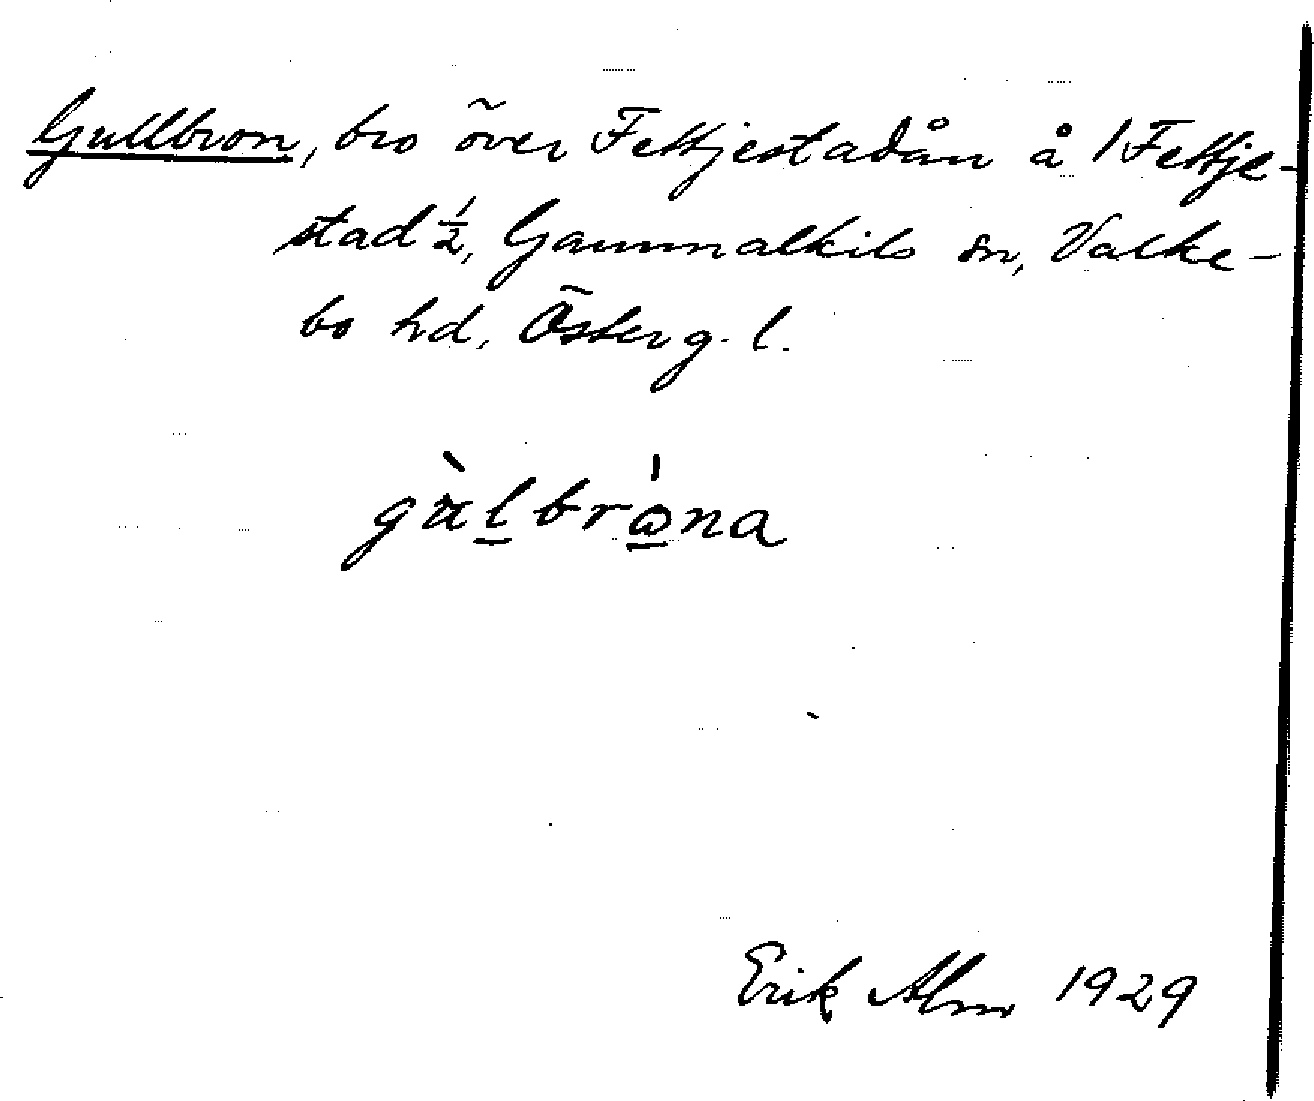 Gullbron, bro över Fettjestadån å 1 Fettje-
stad ½, Gammalkils sn, Valke-
bo hd, Österg. l.
gùlbrὼna
Erik Alm 1929